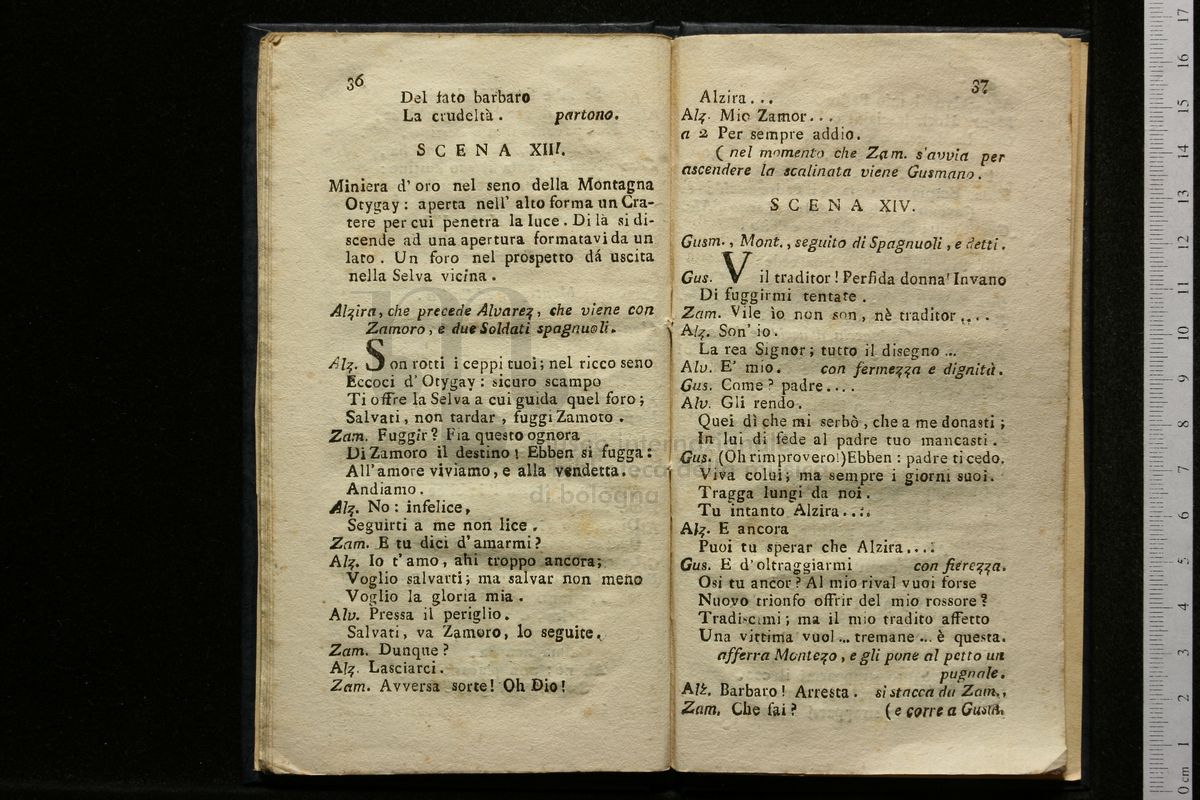 36
Del fato barbaro
La crudeltà. partono.
SCENA XIII.
Miniera d'oro nel seno della Montagna
Otygay: aperta nell'alto forma un Cra-
tere per cui penetra la luce. Di là si di-
scende ad una apertura formatavi da un
lato. Un foro nel prospetto dá uscita
nella Selva vicina.
Alzira, che precede Alvarez, che viene con
Zamoro, e due Soldati spagnuoli.
Alz. Son rotti i ceppi tuoi; nel ricco seno
Eccoci d'Otygay: sicuro scampo
Ti offre la Selva a cui guida quel foro;
Salvati, non tardar, fuggi Zamoto.
Zam. Fuggir? Fia questo ognora
Di Zamoro il destino! Ebben si fugga:
All'amore viviamo, e alla vendetta.
Andiamo.
Alz. No: infelice,
Seguirti a me non lice.
Zam. E tu dici d'amarmi?
Alz. Io t'amo, ahi troppo ancora;
Voglio salvarti; ma salvar non meno
Voglio la gloria mia.
Alv. Pressa il periglio.
Salvati, va Zamoro, lo seguite.
Zam. Dunque?
Alz. Lasciarci.
Zam. Avversa sorte! Oh Dio!
37
Alzira...
Alz. Mio Zamor...
a 2 Per sempre addio.
(nel momento che Zam. s'avvia per
ascendere la scalinata viene Gusmano.
SCENA XIV.
Gusm., Mont., seguito di Spagnuoli, e detti.
Gus. Vil traditor! Perfida donna! Invano
Di fuggirmi tentate.
Zam. Vile io non son, nè traditor....
Alz. Son' io.
La rea Signor; tutto il disegno...
Alv. E' mio. con fermezza e dignità.
Gus. Come? padre....
Alv. Gli rendo.
Quei dì che mi serbò, che a me donasti;
In lui di fede al padre tuo mancasti.
Gus. (Oh rimprovero!) Ebben: padre ti cedo.
Viva colui; ma sempre i giorni suoi.
Tragga lungi da noi.
Tu intanto Alzira....
Alz. E ancora
Puoi tu sperar che Alzira....
Gus. E d'oltraggiarmi con fierezza.
Osi tu ancor? Al mio rival vuoi forse
Nuovo trionfo offrir del mio rossore?
Tradiscimi; ma il mio tradito affetto
Una vittima vuol... tremane... è questa.
afferra Montezo, e gli pone al petto un
pugnale.
Alz. Barbaro! Arresta. si stacca da Zam.,
Zam. Che fai? (e corre a Gusm.